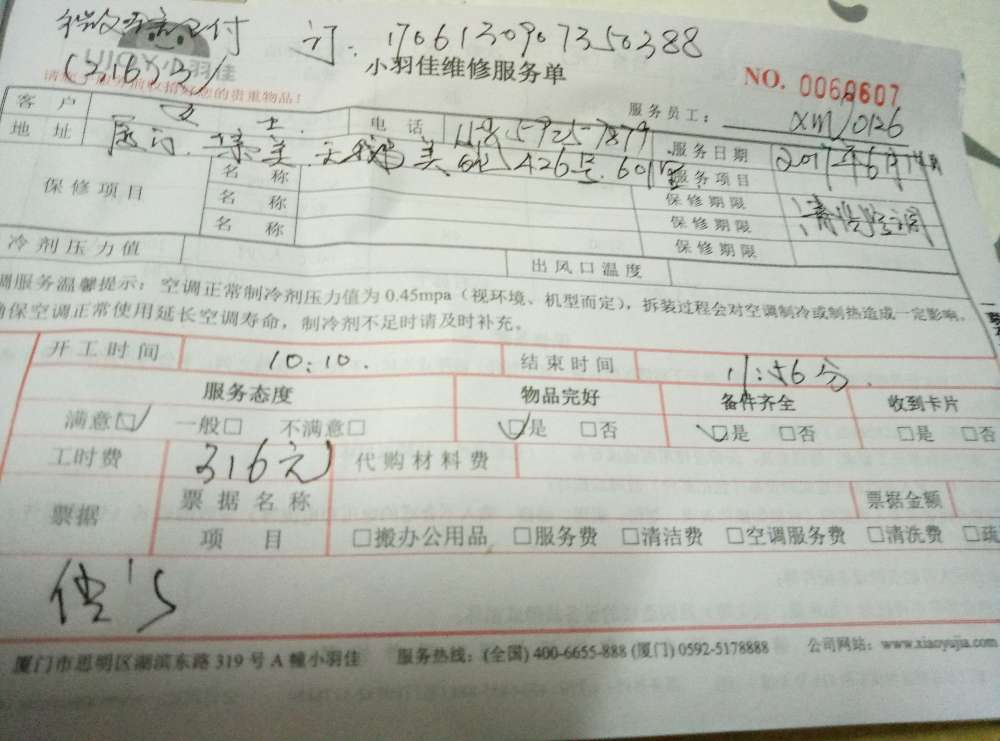 订. 17061309073503​88
(316元)
小羽佳
小羽佳维修服务单
NO. 0060607
请您于服务前收拾好您的贵重物品!
服务员工: XM0126
客户 电话
地址 厦门.集美 426号.601室 服务日期 2017年6月
保修项目 名称 服务项目 清洗空调
名称 保修期限
名称 保修期限
保修期限
冷剂压力值 出风口温度
调服务温馨提示: 空调正常制冷剂压力值为0.45mpa(视环境、机型而定), 拆装过程会对空调制冷或制热造成一定影响。
确保空调正常使用延长空调寿命, 制冷剂不足时请及时补充。
开工时间 10:10. 结束时间 11:56分.
服务态度 物品完好 备件齐全 收到卡片
满意□ 一般□ 不满意□ □是 □否 □是 □否 □是 □否
工时费 316元 代购材料费
票据 票据名称 票据金额
项目 □搬办公用品 □服务费 □清洁费 □空调服务费 □清洗费 □疏
厦门市思明区湖滨东路319号A幢小羽佳 服务热线: (全国) 400-6655-888 (厦门) 0592-5178888 公司网站: www.xiaoyujia.com